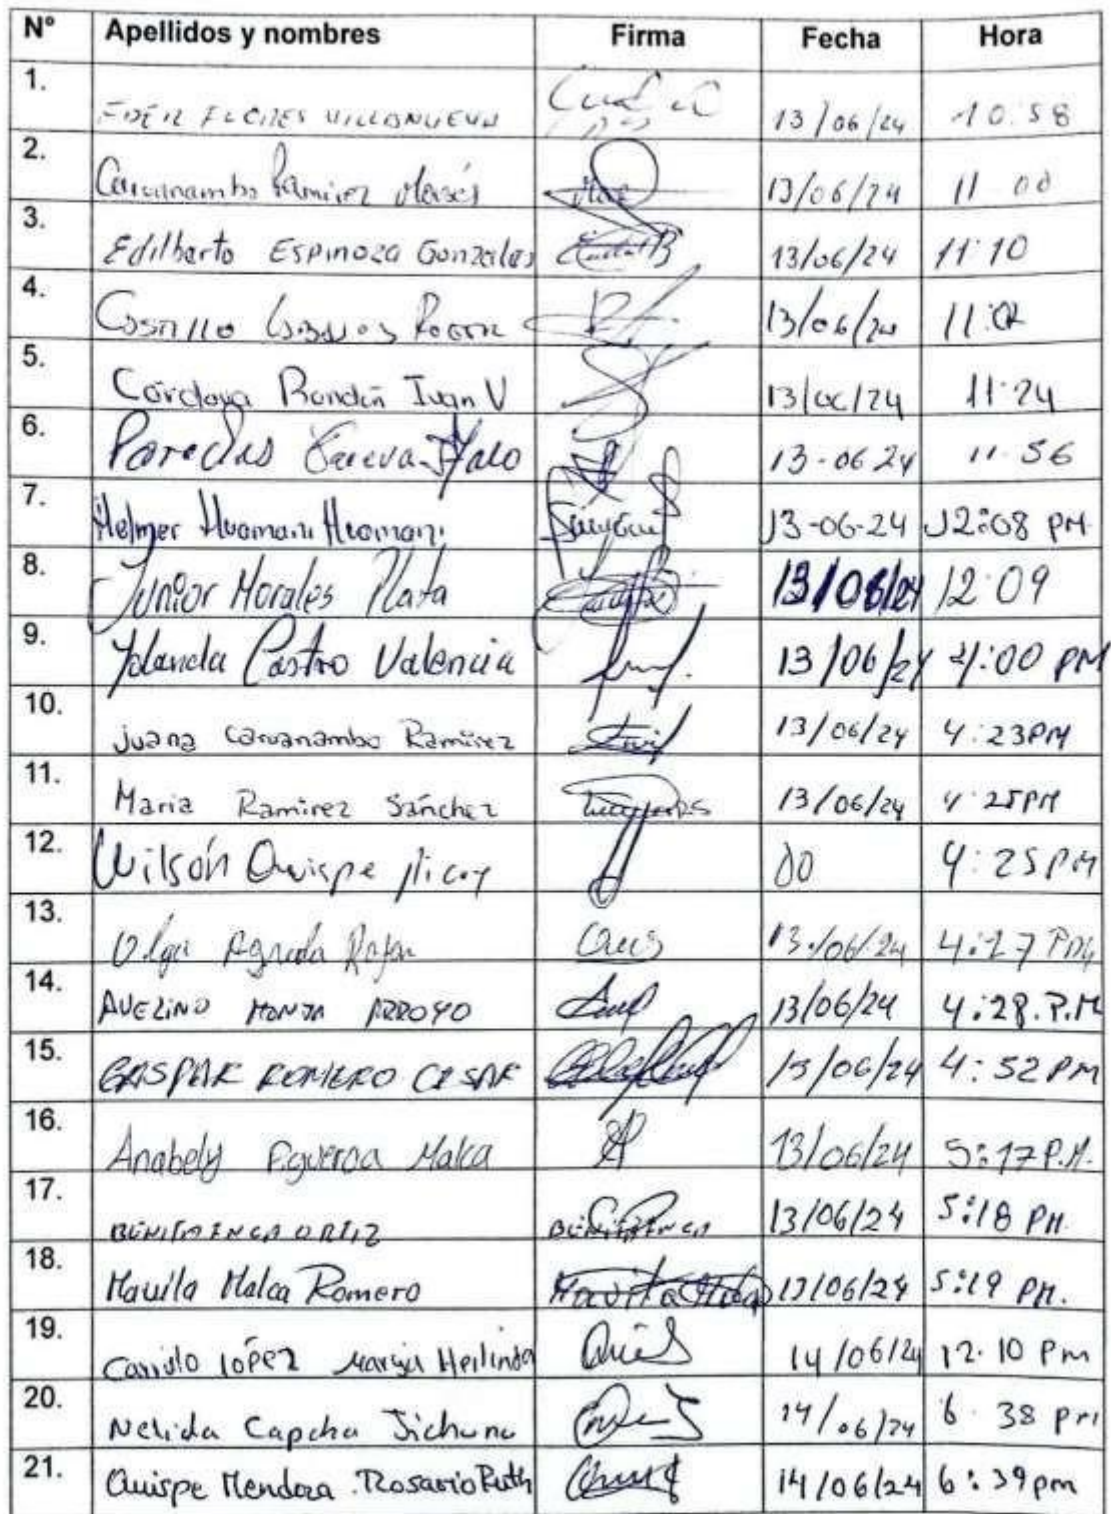 Nº Apellidos y nombres Firma Fecha Hora
1. EDER FLORES VILLANUEVA 13/06/24 10:58
2. Caruanambo Ramirez Moisés 13/06/24 11 00
3. Edilberto Espinoza Gonzales 13/06/24 11:10
4. Castillo 13/06/24 11:02
5. Cordova Rondón Ivan V 13/06/24 11:24
6. Paredes Cueva Italo 13-06 24 11:56
7. Helmer Huamani Huamani 13-06-24 12:08 PM
8. Junior Morales Plata 13/06/24 12:09
9. Yolanda Castro Valencia 13/06/24 4:00 PM
10. Juana Caruanambo Ramirez 13/06/24 4:23PM
11. Maria Ramirez Sánchez 13/06/24 4:25PM
12. Wilson Quispe 4:25PM
13. Olga Rojas 13/06/24 4:27 PM
14. AVELINO MONJA ARROYO 13/06/24 4:28.P.M
15. GASPAR ROMERO CESAR 13/06/24 4:52 PM
16. Anabely Figueroa Malca 13/06/24 5:17 P.M.
17. BENITA INCA ORTIZ BENITA INCA 13/06/24 5:18 PM.
18. Mavila Malca Romero 13/06/24 5:19 PM.
19. López 14/06/24 12:10 Pm
20. Nelida Capcha Jichuna 14/06/24 6:38 pm
21. Quispe Mendoza Rosario Ruth 14/06/24 6:39pm